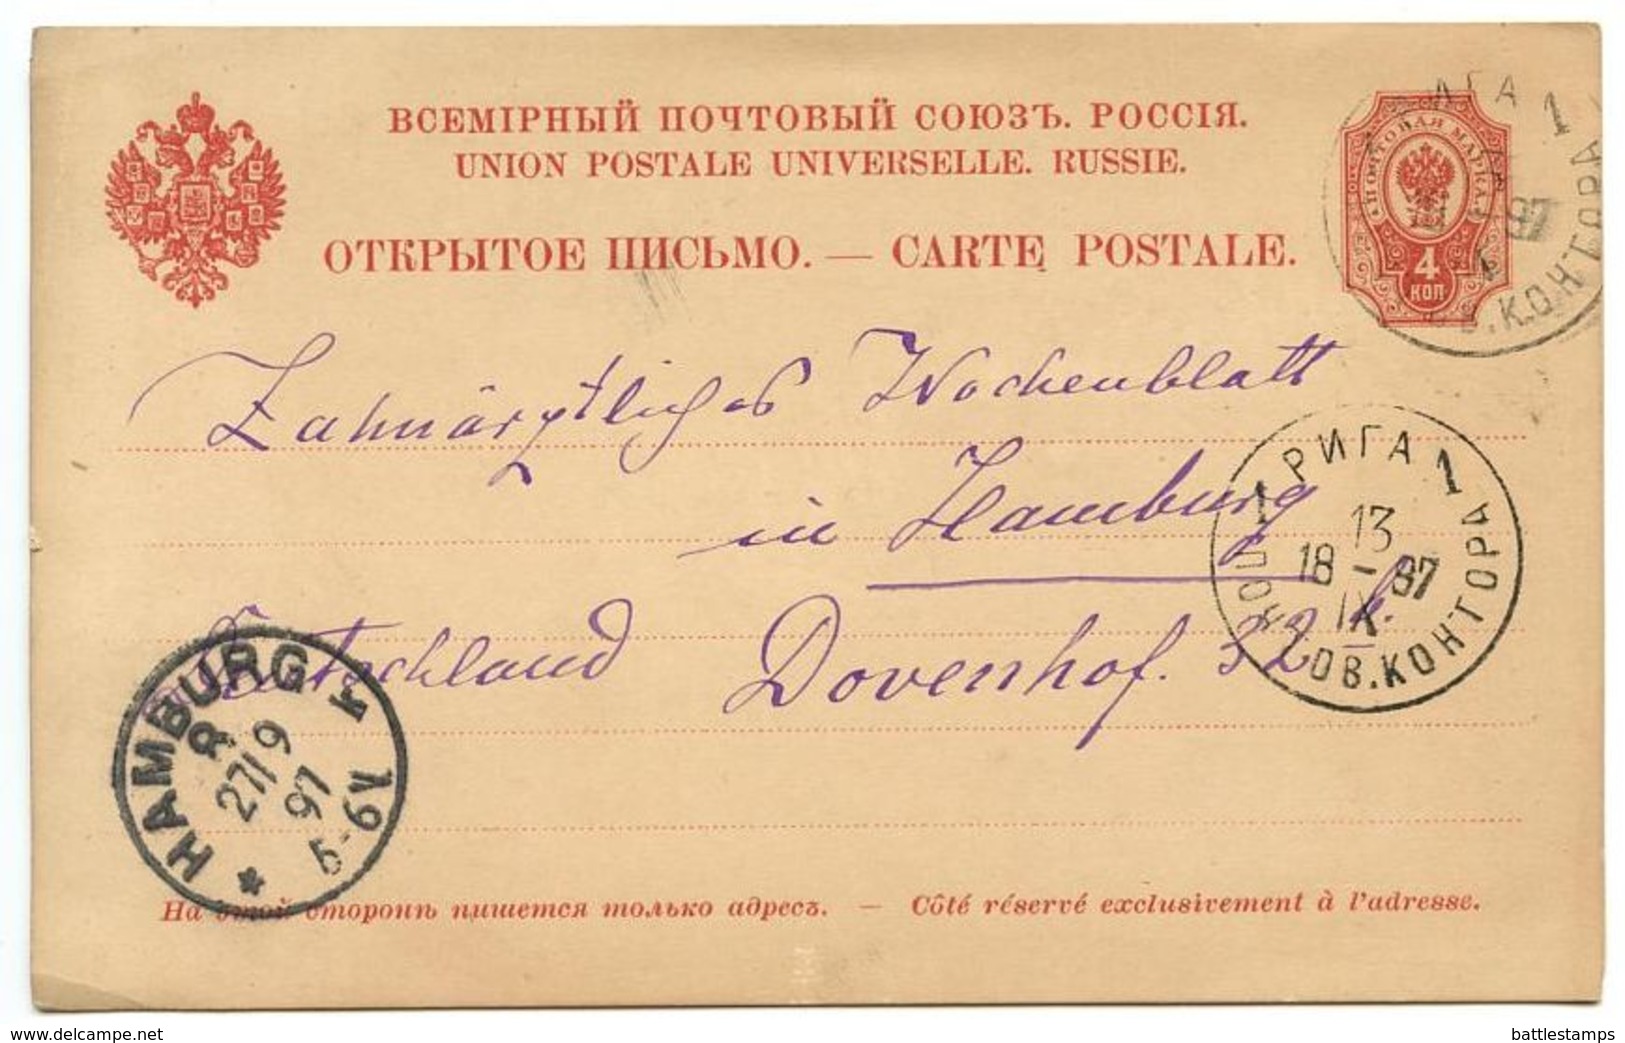 ВСЕМІРНЫЙ ПОЧТОВЫЙ СОЮЗЪ. РОССІЯ.
UNION POSTALE UNIVERSELLE. RUSSIE.
ОТКРЫТОЕ ПИСЬМО. — CARTE POSTALE.
ПОЧТОВАЯ МАРКА
4
КОП
ИГА 1
97
ОВ.КОНТОРА
Zahnärztliches Wochenblatt
in Hamburg
Deutschland Dovenhof. 32
1 РИГА 1
13
18 - 97
IX
ПОЧТОВ.КОНТОРА
HAMBURG
27/9
97
5-6V
На этой сторонѣ пишется только адресъ. — Côté réservé exclusivement à l'adresse.
www.delcampe.net
battlestamps